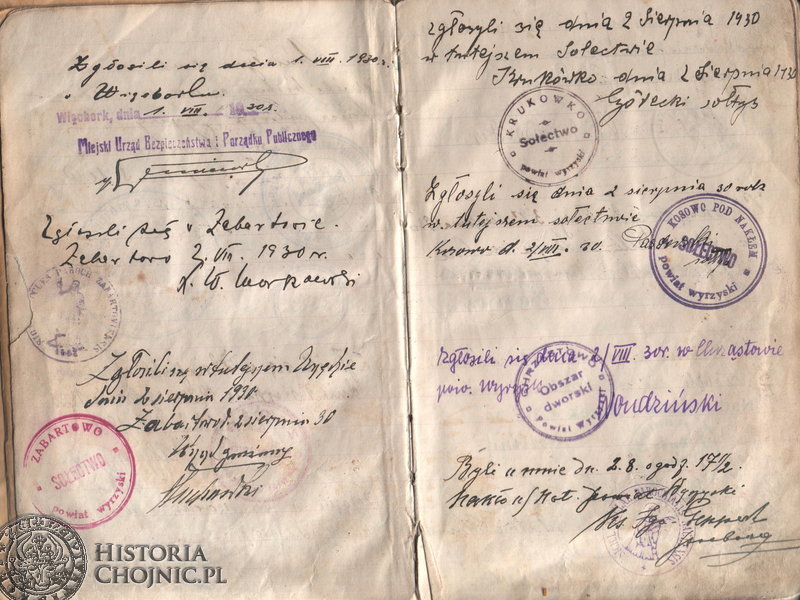 Zgłosili się dnia 1. VIII. 1930 r.
w Więcborku
Więcbork, dnia 1. VIII. 1930 r.
Miejski Urząd Bezpieczeństwa i Porządku Publicznego
Zgłosili się w Zabartowie.
Zabartowo 2. VIII. 1930 r.
X. W.
Zgłosili się w tutejszym Urzędzie
dnia 2 sierpnia 1930
Zabartowo 2 sierpnia 30
Urząd gminny
ZABARTOWO
SOŁECTWO
powiat wyrzyski
HISTORIA
CHOJNIC.PL
zgłosyli się dnia 2 Sierpnia 1930
w tutejszem Sołectwie
Krukówko dnia 2 Sierpnia 1930
Górecki sołtys
KRUKOWKO
Sołectwo
powiat wyrzyski
Zgłosyli się dnia 2 sierpnia 30 rok
w tutejszem sołectwie
Kosowo d. 2/VIII. 30.
KOSOWO POD NAKŁEM
SOŁECTWO
powiat wyrzyski
Zgłosili się dnia 2/VIII 30r. w Chrząstowie
pow. Wyrzysk
Obszar
dworski
powiat Wyrzyski
Byli u mnie dn. 2. 8. o godz. 17½
Nakło n/Not. powiat Wyrzyski